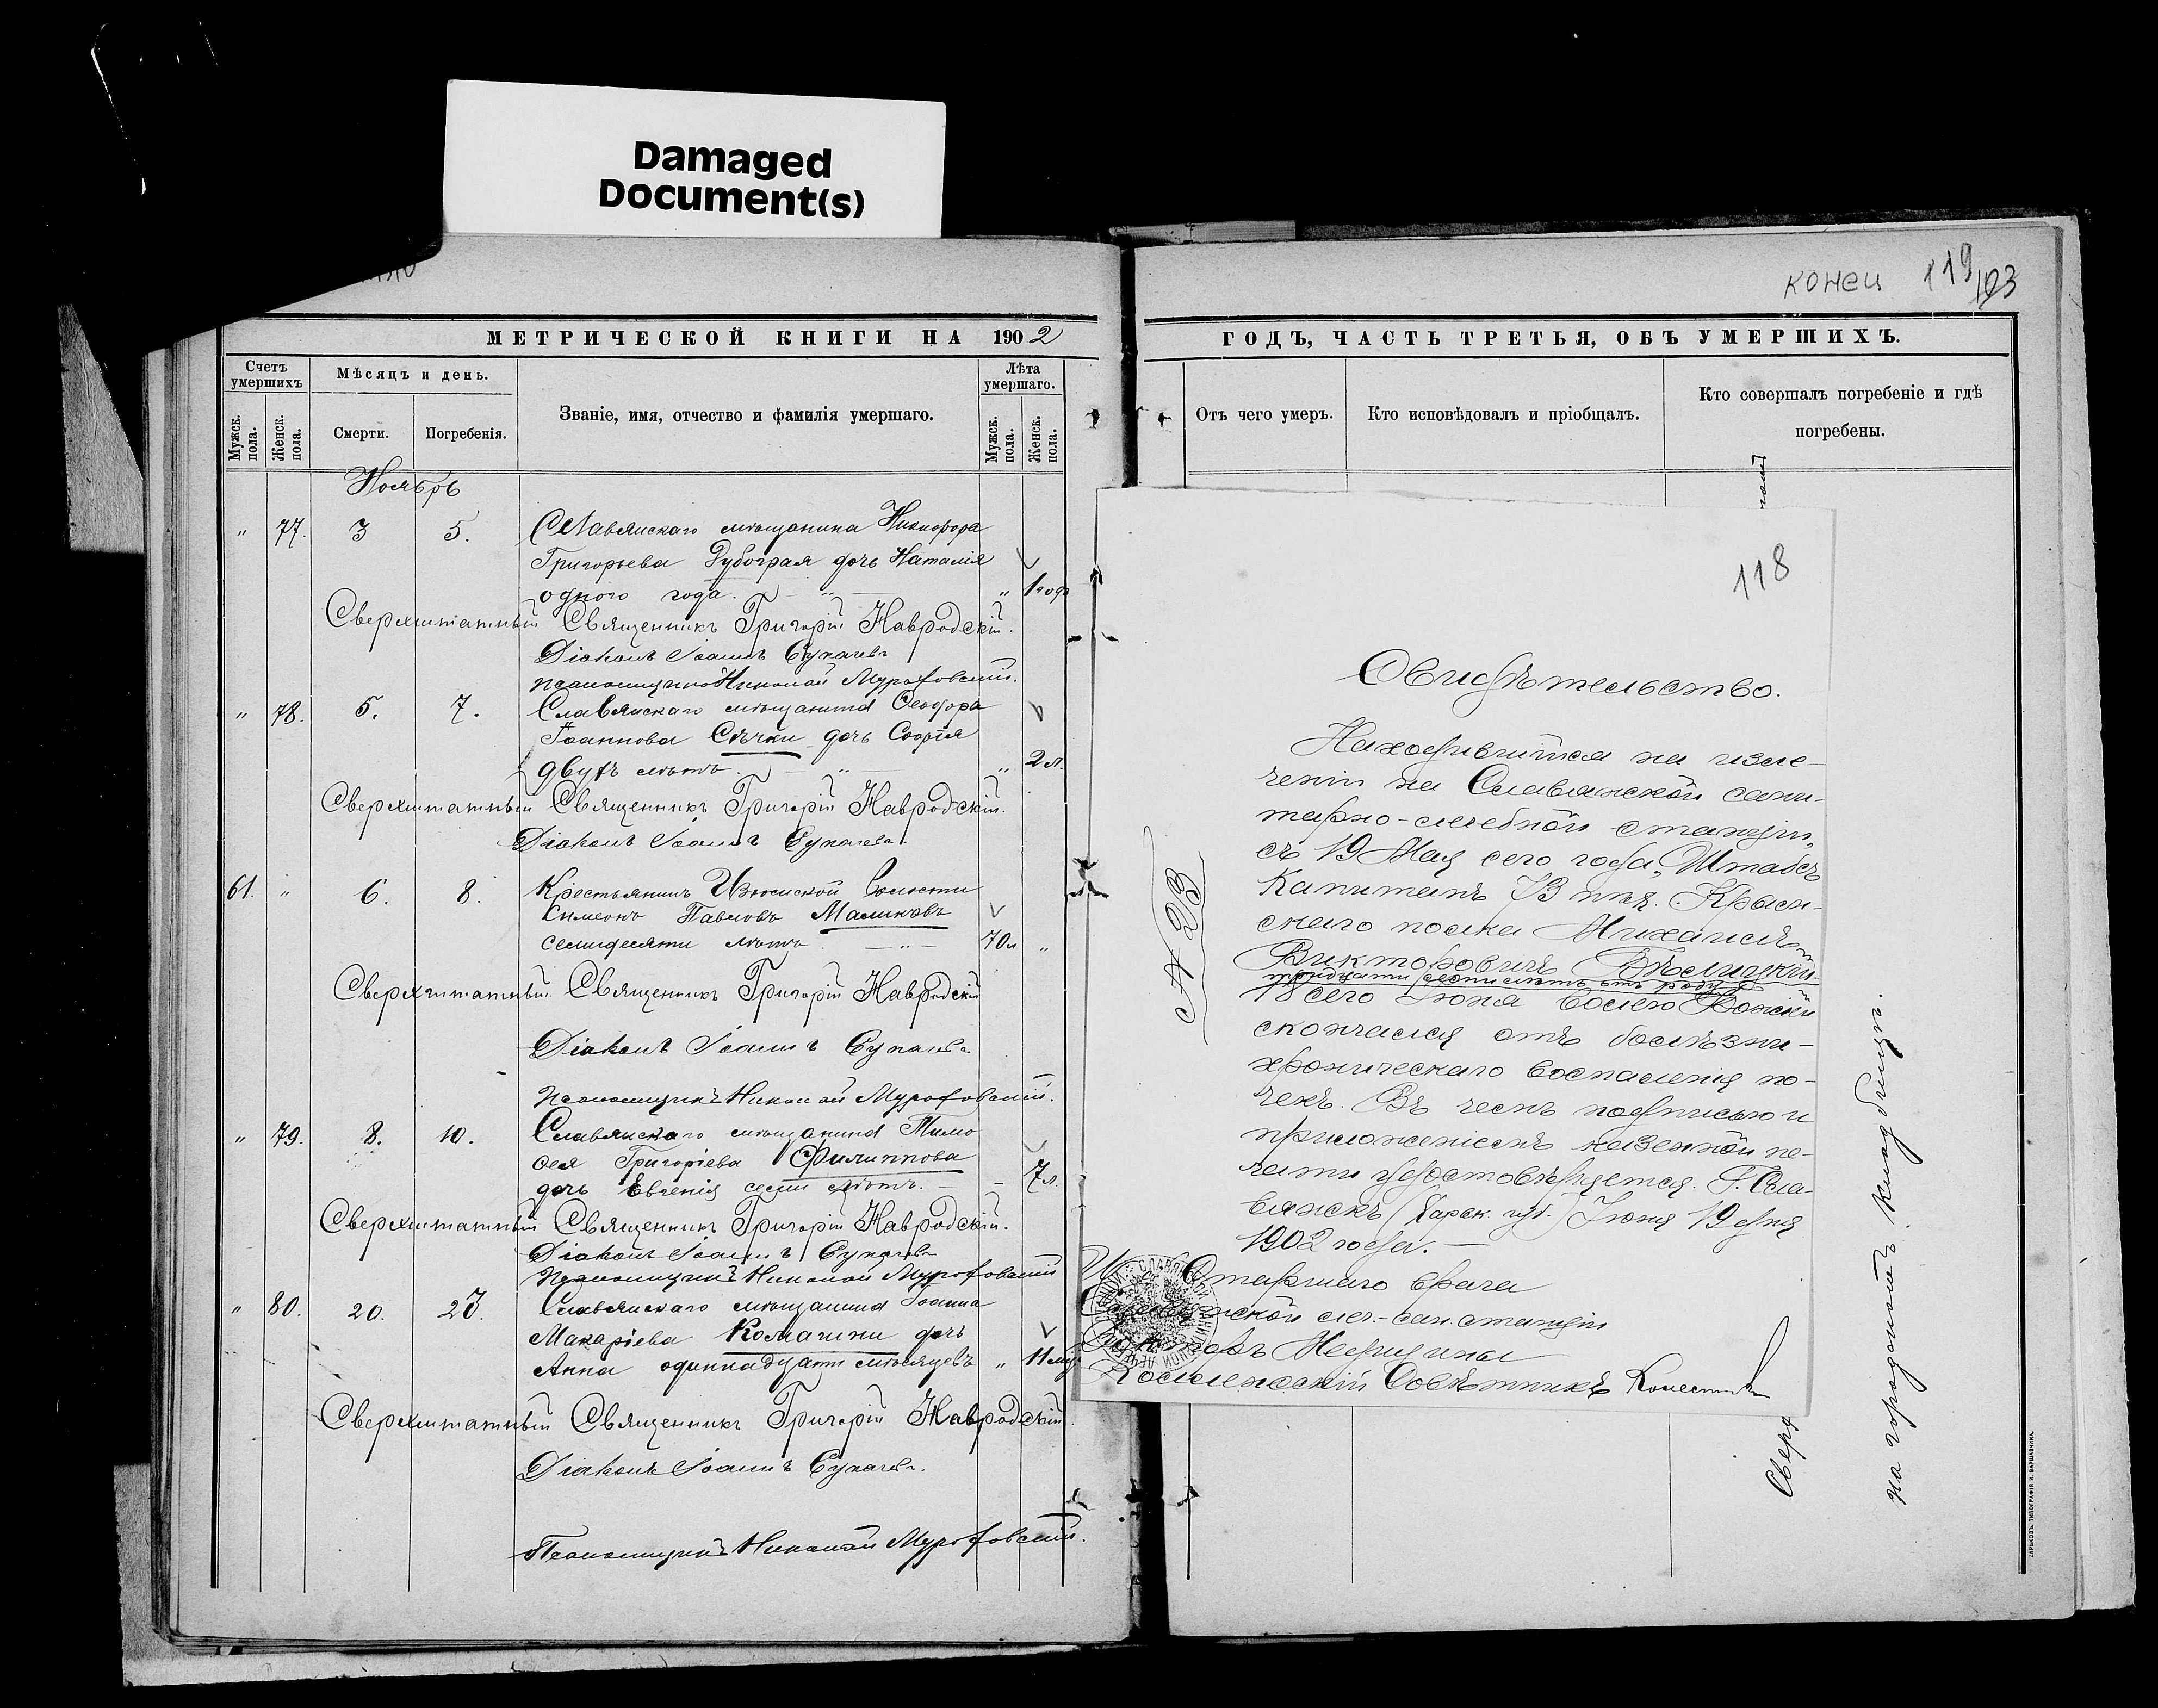 Damaged
Document(s)
МЕТРИЧЕСКОЙ КНИГИ НА 1902
Счетъ умершихъ
Мужск. пола.
Женск. пола.
Мѣсяцъ и день.
Смерти.
Погребенія.
Званіе, имя, отчество и фамилія умершаго.
Лѣта умершаго.
Мужск. пола.
Женск. пола.
Ноябрь
" 77. 3 5. Славянскаго мѣщанина Никифора
Григорьева дочь Наталія
одного года. " 1 годъ
Сверхштатный Священникъ Григорій Навродскій.
Діаконъ Іоаннъ
Псаломщикъ Николай
" 78. 5. 7. Славянскаго мѣщанина Ѳеодора
Іоаннова Сѣчки дочь Софія
двухъ лѣтъ. " 2 л.
Сверхштатный Священникъ Григорій Навродскій.
Діаконъ Іоаннъ
61. " 6. 8. Крестьянинъ Изюмской волости
Симеонъ Павловъ Маликовъ
семидесяти лѣтъ 70 л "
Сверхштатный Священникъ Григорій Навродскій
Діаконъ Іоаннъ
Псаломщикъ Николай
" 79. 8. 10. Славянскаго мѣщанина Тимо
ѳея Григоріева Филиппова
дочь Евгенія семи лѣтъ. 7 л.
Сверхштатный Священникъ Григорій Навродскій.
Діаконъ Іоаннъ
Псаломщикъ Николай
" 80. 20. 23. Славянскаго мѣщанина Іоанна
Макаріева дочь
Анна одиннадцати мѣсяцевъ " 11 мѣс
Сверхштатный Священникъ Григорій Навродскій.
Діаконъ Іоаннъ
Псаломщикъ Николай
конец 119
103
ГОДЪ, ЧАСТЬ ТРЕТЬЯ, ОБЪ УМЕРШИХЪ.
Отъ чего умеръ.
Кто исповѣдовалъ и пріобщалъ.
Кто совершалъ погребеніе и гдѣ
погребены.
118
Свидѣтельство.
Находившійся на изле-
ченіи на Славянской сани-
тарно-лечебной станціи,
съ 19 Мая сего года, Штабсъ
Капитанъ 73 пѣх. Крым-
скаго полка Михаилъ
Викторовичъ Бѣлицкій
тридцати лѣтъ отъ роду
18 сего Іюня волею Божіей
скончался отъ болѣзни -
хроническаго воспаленія по-
чекъ. Въ чемъ подписью и
приложеніемъ казенной пе-
чати удостовѣряется. Г. Сла-
вянскъ (Харьк. губ.) Іюня 19 дня
1902 года. —
Старшаго врача
Славянской леч.-сан. станціи
Докторъ Медицины
Коллежскій Совѣтникъ
№ 23
Сверх
на городскомъ кладбищѣ.
ХАРЬКОВЪ. ТИПОГРАФІЯ И. ВАРШАВЧИКА.